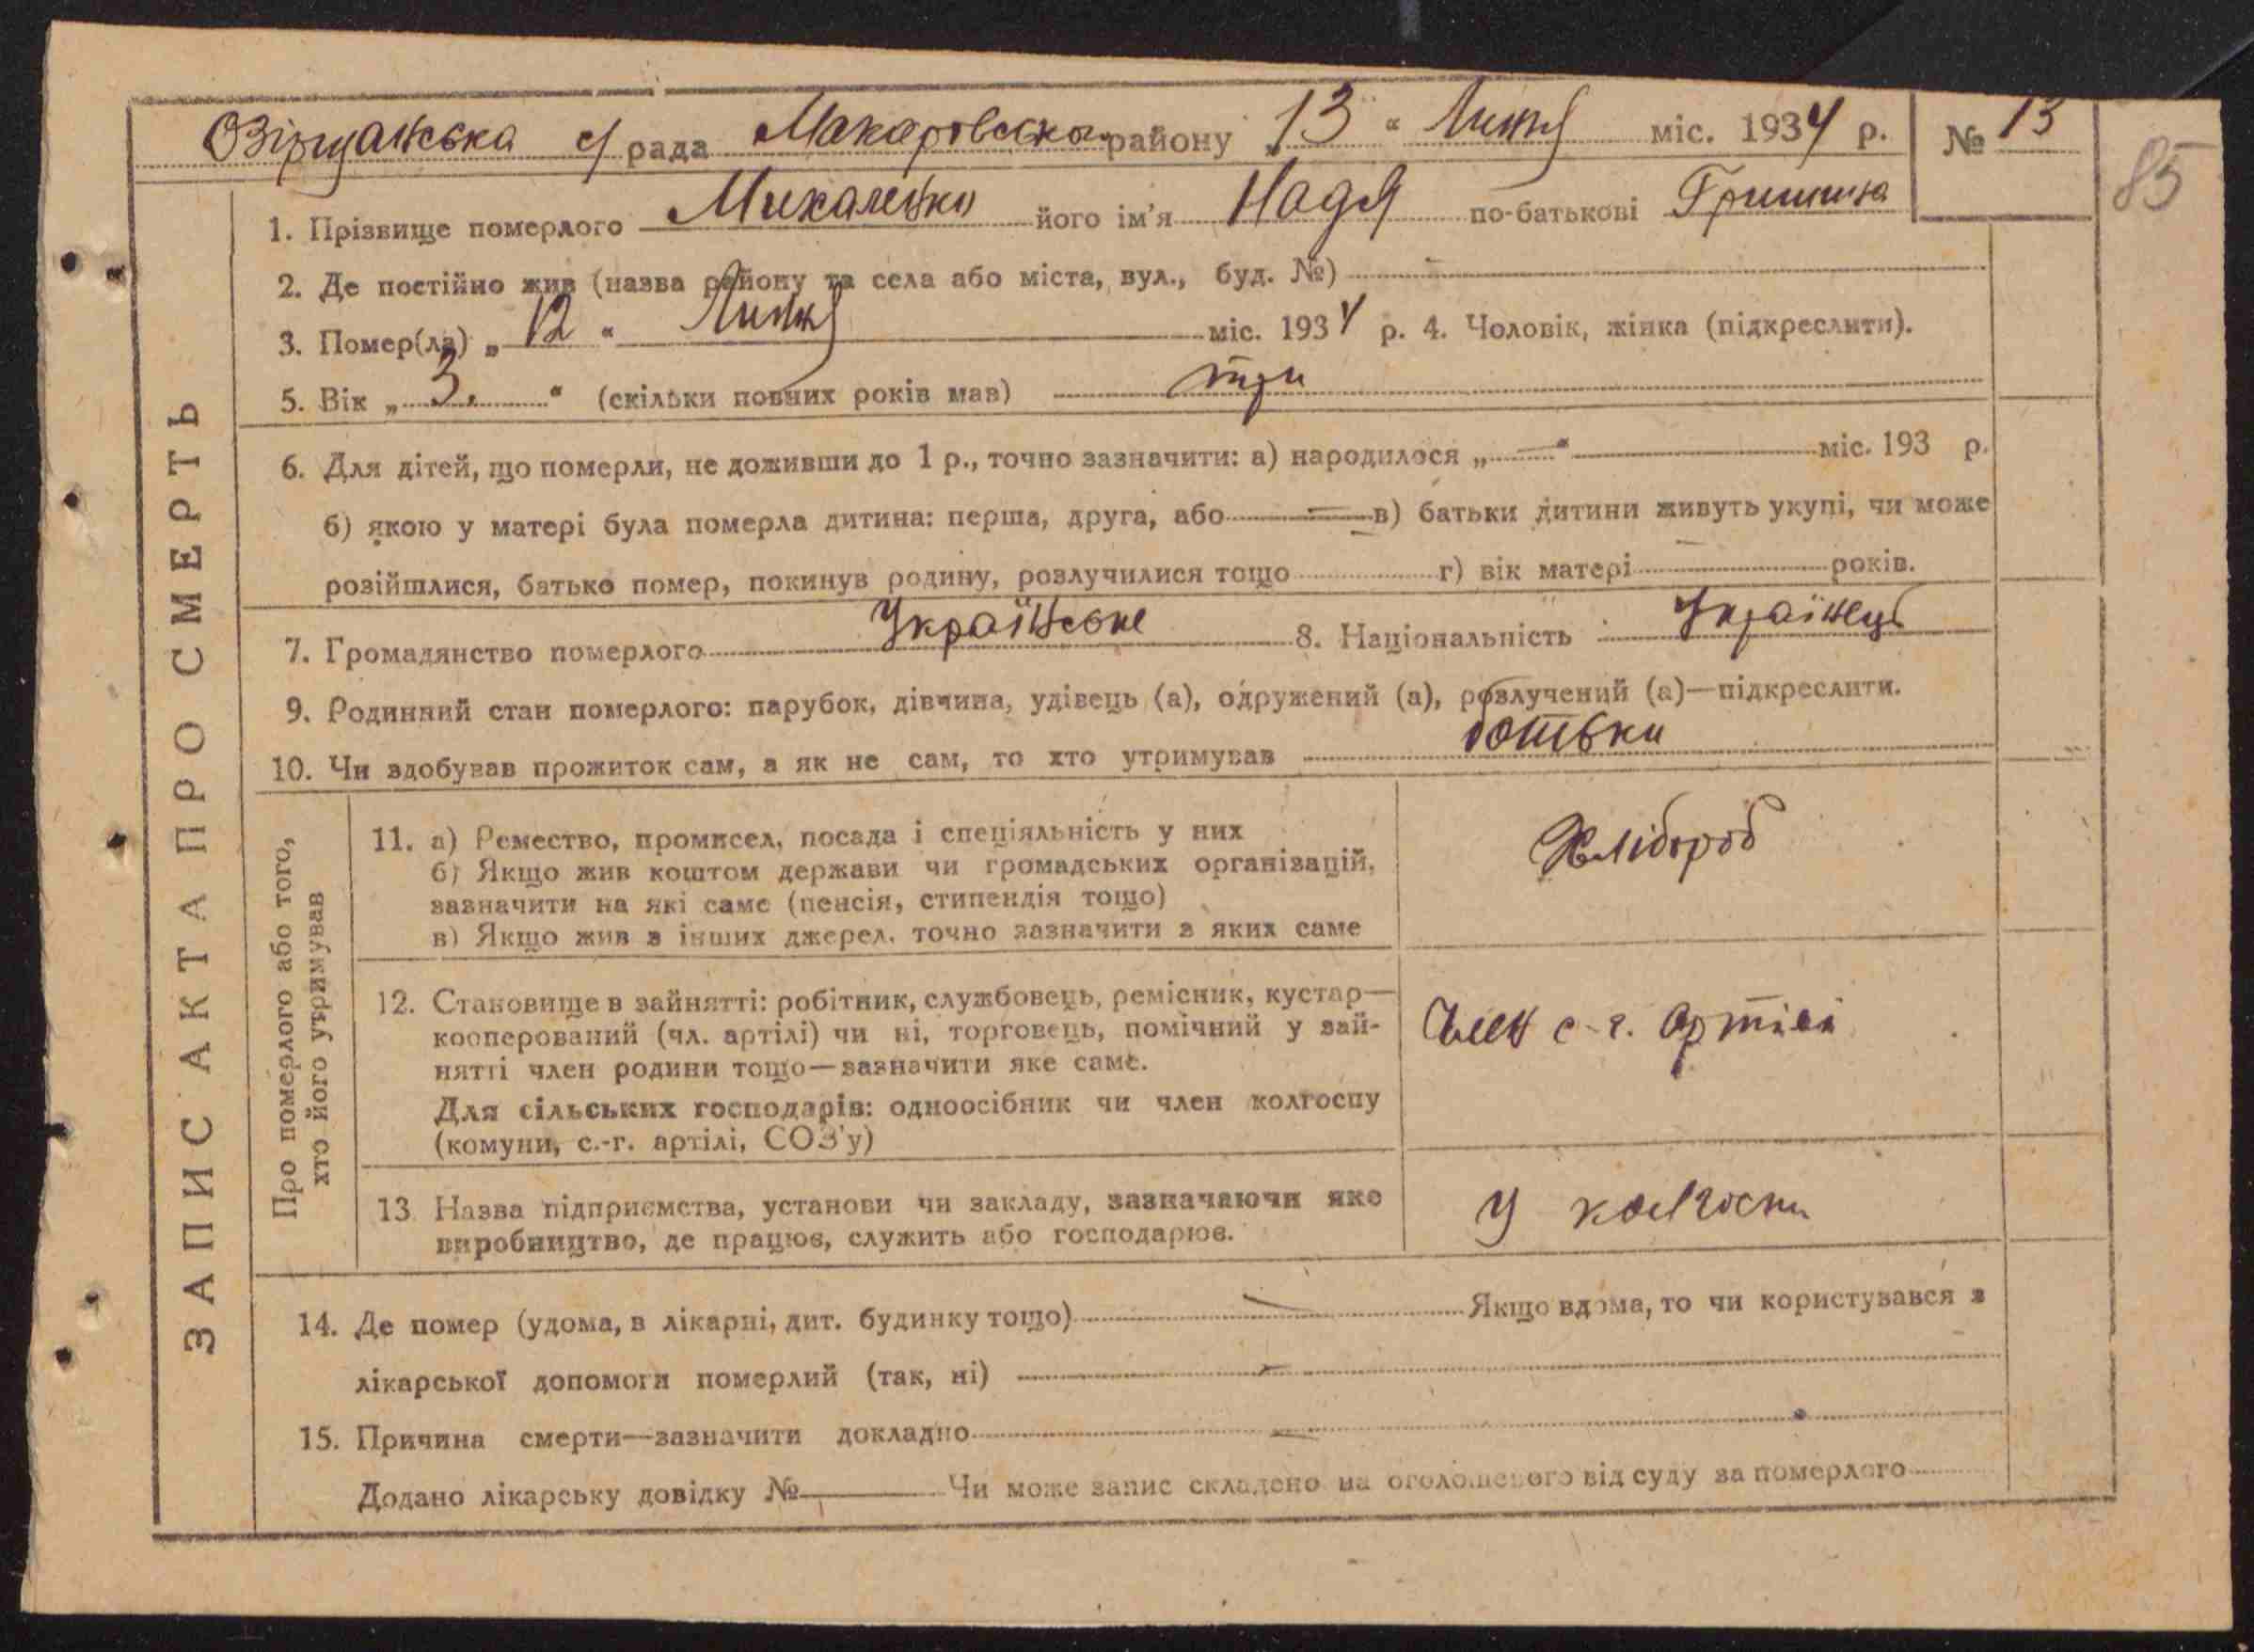 Озірщанська с/рада Макаровського району „13“ Липня міс. 1934 р. № 13
85
ЗАПИС АКТА ПРО СМЕРТЬ
1. Прізвище померлого Михаленко його ім'я Надя по-батькові
2. Де постійно жив (назва району та села або міста, вул., буд. №) —
3. Помер(ла) „12“ Липня міс. 1934 р. 4. Чоловік, жінка (підкреслити).
5. Вік „3.“ (скільки повних років мав) три
6. Для дітей, що померли, не доживши до 1 р., точно зазначити: а) народилося „—“ міс. 193 р.
б) якою у матері була померла дитина: перша, друга, або — в) батьки дитини живуть укупі, чи може
розійшлися, батько помер, покинув родину, розлучилися тощо г) вік матері — років.
7. Громадянство померлого Українське 8. Національність Українець
9. Родинний стан померлого: парубок, дівчина, удівець (а), одружений (а), розлучений (а)—підкреслити.
10. Чи здобував прожиток сам, а як не сам, то хто утримував батьки
Про померлого або того,
хто його утримував
11. а) Ремество, промисел, посада і спеціяльність у них
б) Якщо жив коштом держави чи громадських організацій,
зазначити на які саме (пенсія, стипендія тощо)
в) Якщо жив з інших джерел, точно зазначити з яких саме
Хлібороб
12. Становище в зайнятті: робітник, службовець, ремісник, кустар—
кооперований (чл. артілі) чи ні, торговець, помічний у зай-
нятті член родини тощо—зазначити яке саме.
Для сільських господарів: одноосібник чи член колгоспу
(комуни, с.-г. артілі, СОЗ'у)
Член с-г. Артілі
13. Назва підприємства, установи чи закладу, зазначаючи яке
виробництво, де працює, служить або господарює.
У колгоспі
14. Де помер (удома, в лікарні, дит. будинку тощо) — Якщо вдома, то чи користувався з
лікарської допомоги померлий (так, ні) —
15. Причина смерти—зазначити докладно —
Додано лікарську довідку № Чи може запис складено на оголошеного від суду за померлого